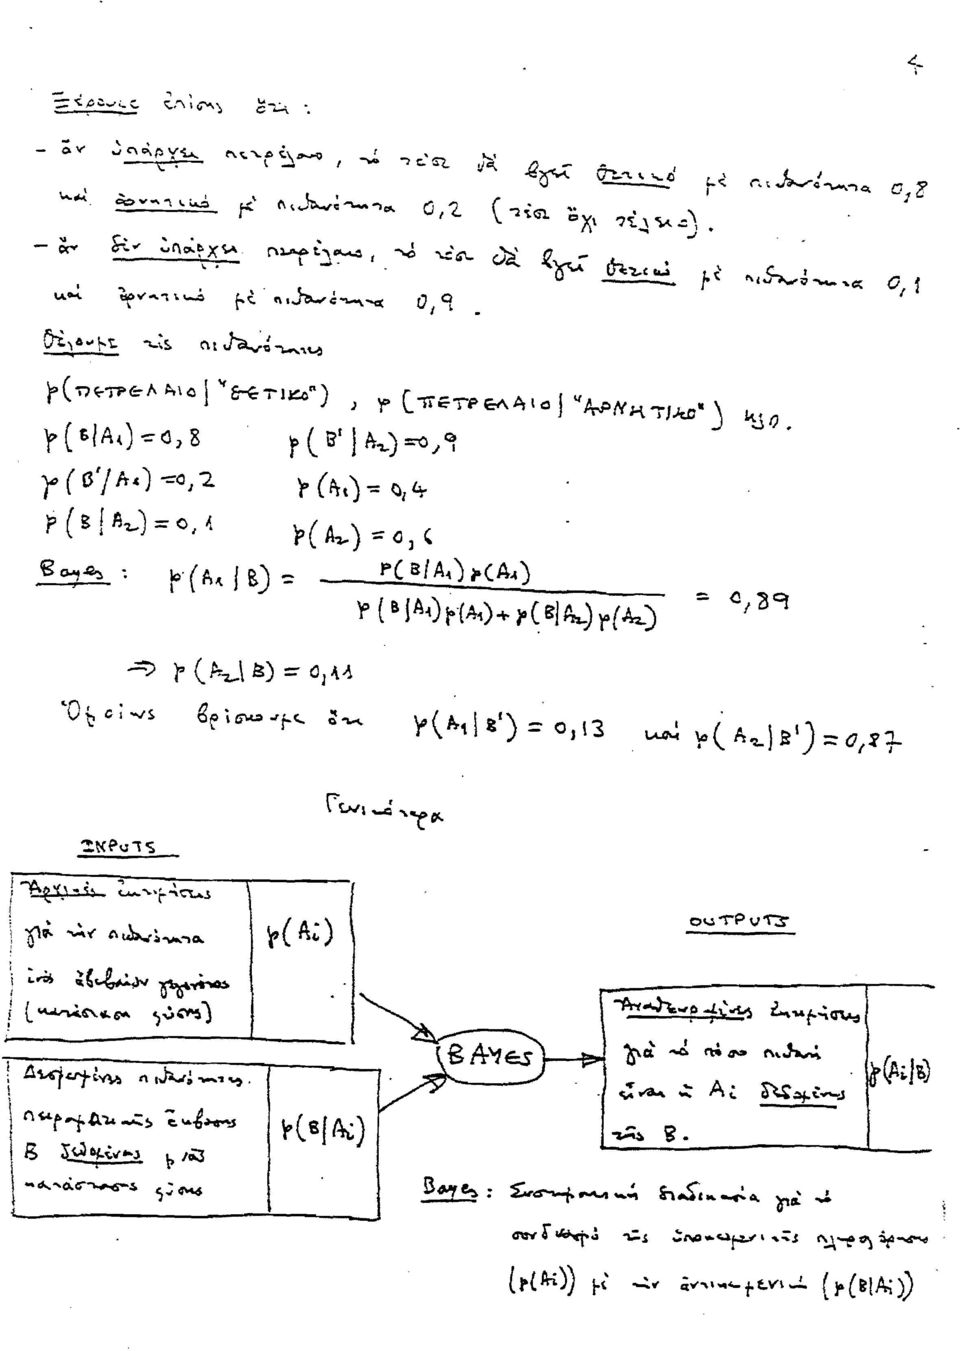 4
Ξέρουμε ἐπίσης ὅτι :
- ἄν ὑπάρχει πετρέλαιο, τό τέστ θά βγεῖ θετικό μέ πιθανότητα 0,8
καί ἀρνητικό μέ πιθανότητα 0,2 (τέστ ὄχι τέλειο).
- ἄν δέν ὑπάρχει πετρέλαιο, τό τέστ θά βγεῖ θετικό μέ πιθανότητα 0,1
καί ἀρνητικό μέ πιθανότητα 0,9.
Θέλουμε τίς πιθανότητες
p(ΠΕΤΡΕΛΑΙΟ|"ΘΕΤΙΚΟ"), p(ΠΕΤΡΕΛΑΙΟ|"ΑΡΝΗΤΙΚΟ") κλπ.
p(B|A₁)=0,8 p(B'|A₂)=0,9
p(B'/A₁)=0,2 p(A₁)=0,4
p(B|A₂)=0,1 p(A₂)=0,6
Bayes : p(A₁|B) = p(B|A₁)p(A₁) / p(B|A₁)p(A₁)+p(B|A₂)p(A₂) = 0,89
⇒ p(A₂|B) = 0,11
Ὁμοίως βρίσκουμε ὅτι p(A₁|B') = 0,13 καί p(A₂|B') = 0,87
Γενικότερα
INPUTS
Ἀρχικές ἐκτιμήσεις
γιά τήν πιθανότητα
ἑνός ἀβεβαίου γεγονότος
(κατάσταση φύσης)
p(Ai)
Δεσμευμένες πιθανότητες
πειραματικῆς ἔκβασης
B δεδομένης μιᾶς
κατάστασης φύσης
p(B|Ai)
BAYES
OUTPUTS
Ἀναθεωρημένες ἐκτιμήσεις
γιά τό πόσο πιθανή
εἶναι ἡ Ai δεδομένης
τῆς B.
p(Ai|B)
Bayes : Συστηματική διαδικασία γιά τό
συνδυασμό τῆς ὑποκειμενικῆς πληροφόρησης
(p(Ai)) μέ τήν ἀντικειμενική (p(B|Ai))